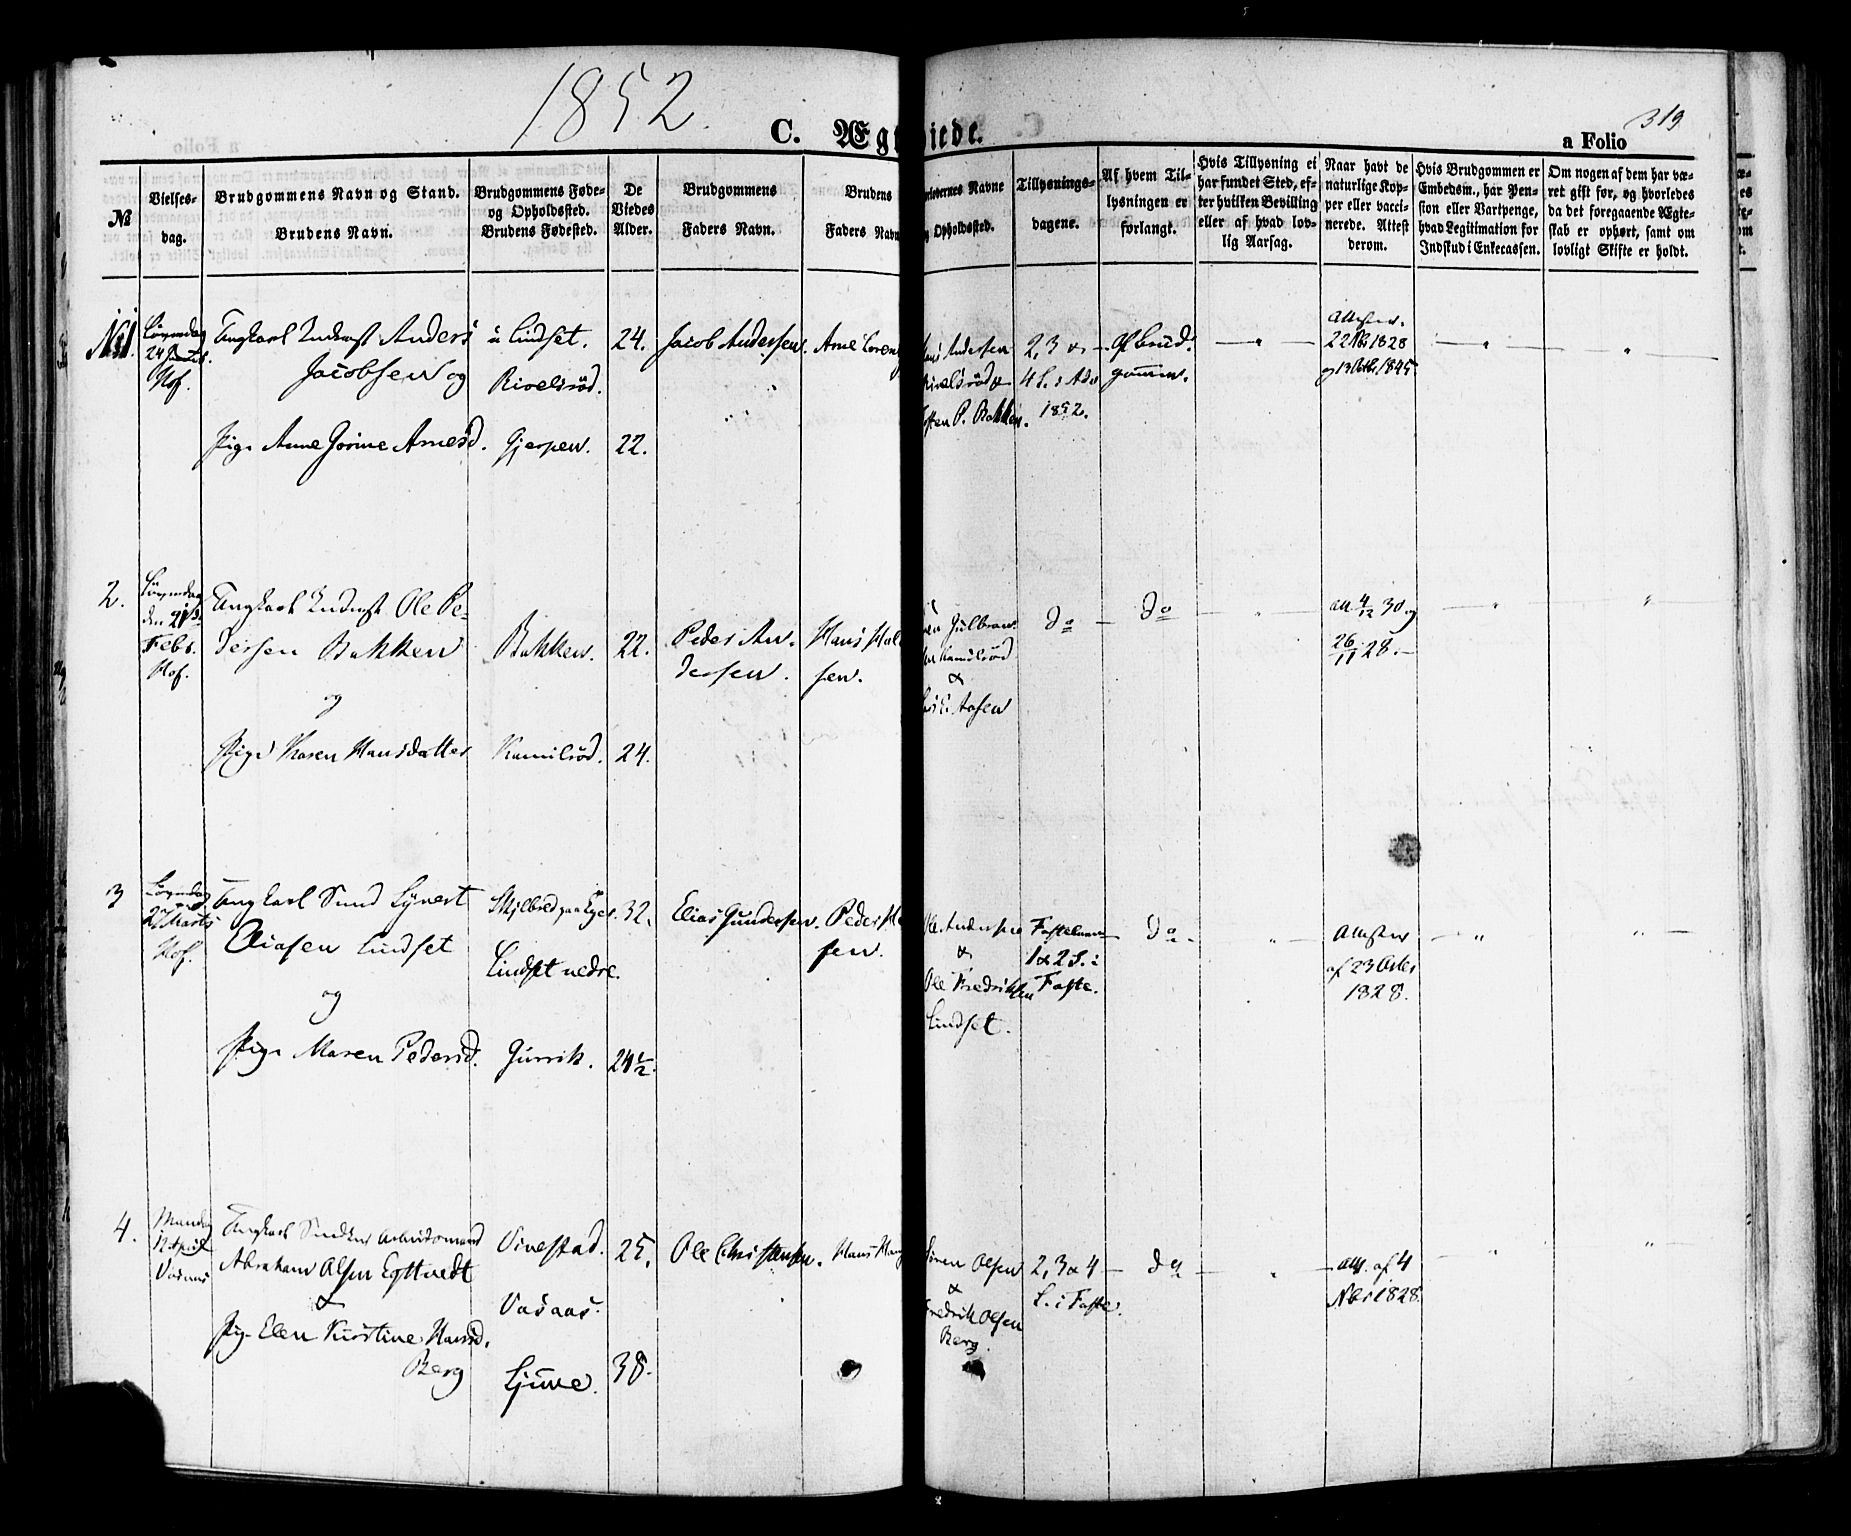 1852.
C. Ægt
iede.
319
a Folio
№
Vielses-
dag.
Brudgommens Navn og Stand.
Brudens Navn.
Brudgommens Føde-
og Opholdssted.
Brudens Fødested.
De
Viedes
Alder.
Brudgommens
Faders Navn.
Brudens
Faders Navn
orlovernes Navne
g Opholdssted.
Tillysnings-
dagene.
Af hvem Til-
lysningen er
forlangt.
Hvis Tillysning ei
har fundet Sted, ef-
ter hvilken Bevilling
eller af hvad lov-
lig Aarsag.
Naar havt de
naturlige Kop-
per eller vacci-
nerede. Attest
derom.
Hvis Brudgommen er
Embedsm., har Pen-
sion eller Vartpenge,
hvad Legitimation for
Indskud i Enkecassen.
Om nogen af dem har væ-
ret gift før, og hvorledes
da det foregaaende Ægte-
skab er ophørt, samt om
lovligt Skifte er holdt.
№1.
Løverdag
Hof.
Ungkarl Anders
Jacobsen og
Pige Anne Arnesd.
Lindset.
Rivelsrød.
Gjerpen.
24.
22.
Jacob Andersen.
Arne
Andersen
Rivelsrød &
P. Bakken.
2, 3 &
4 S. i Adv
1852.
Af Brud-
gommen.
Attester
1828
1845
2.
Løverdag
den 21de
Febr.
Hof.
Ungkarl Ole Pe-
dersen Bakken
og
Pige Karen Hansdatter
Bakken.
Kamilrød.
22.
24.
Peder An-
dersen.
Hans Hal
sen.
Gulbran
Kamilrød
&
Aasen
do
do
att 4/12 30 og
26/11 28.
3
Løverdag
27 Marts
Hof.
Ungkarl Smed Syvert
Eliasen Lindset
og
Pige Maren Pedersd.
Skjelbred paa Eger.
Lindset nedre.
32.
24 1/2.
Elias Gundersen.
Peder
sen.
Ole Andersen
&
Ole Fredriksen
Lindset.
Fastelavn
1 & 2 S. i
Faste.
do
Attester
af 23 Octbr
1828.
4.
Mandag
12 April
Vasaas
Ungkarl Arbeidsmand
Abraham Olsen
&
Pige Elen Kirstine Hansd.
Berg
Vivestad.
Vasaas.
25.
38.
Ole Christensen.
Hans
Søren Olsen
&
Fredrik Olsen
Berg.
2, 3 & 4
S. i Faste.
do
att. af 4
Nbr 1828.